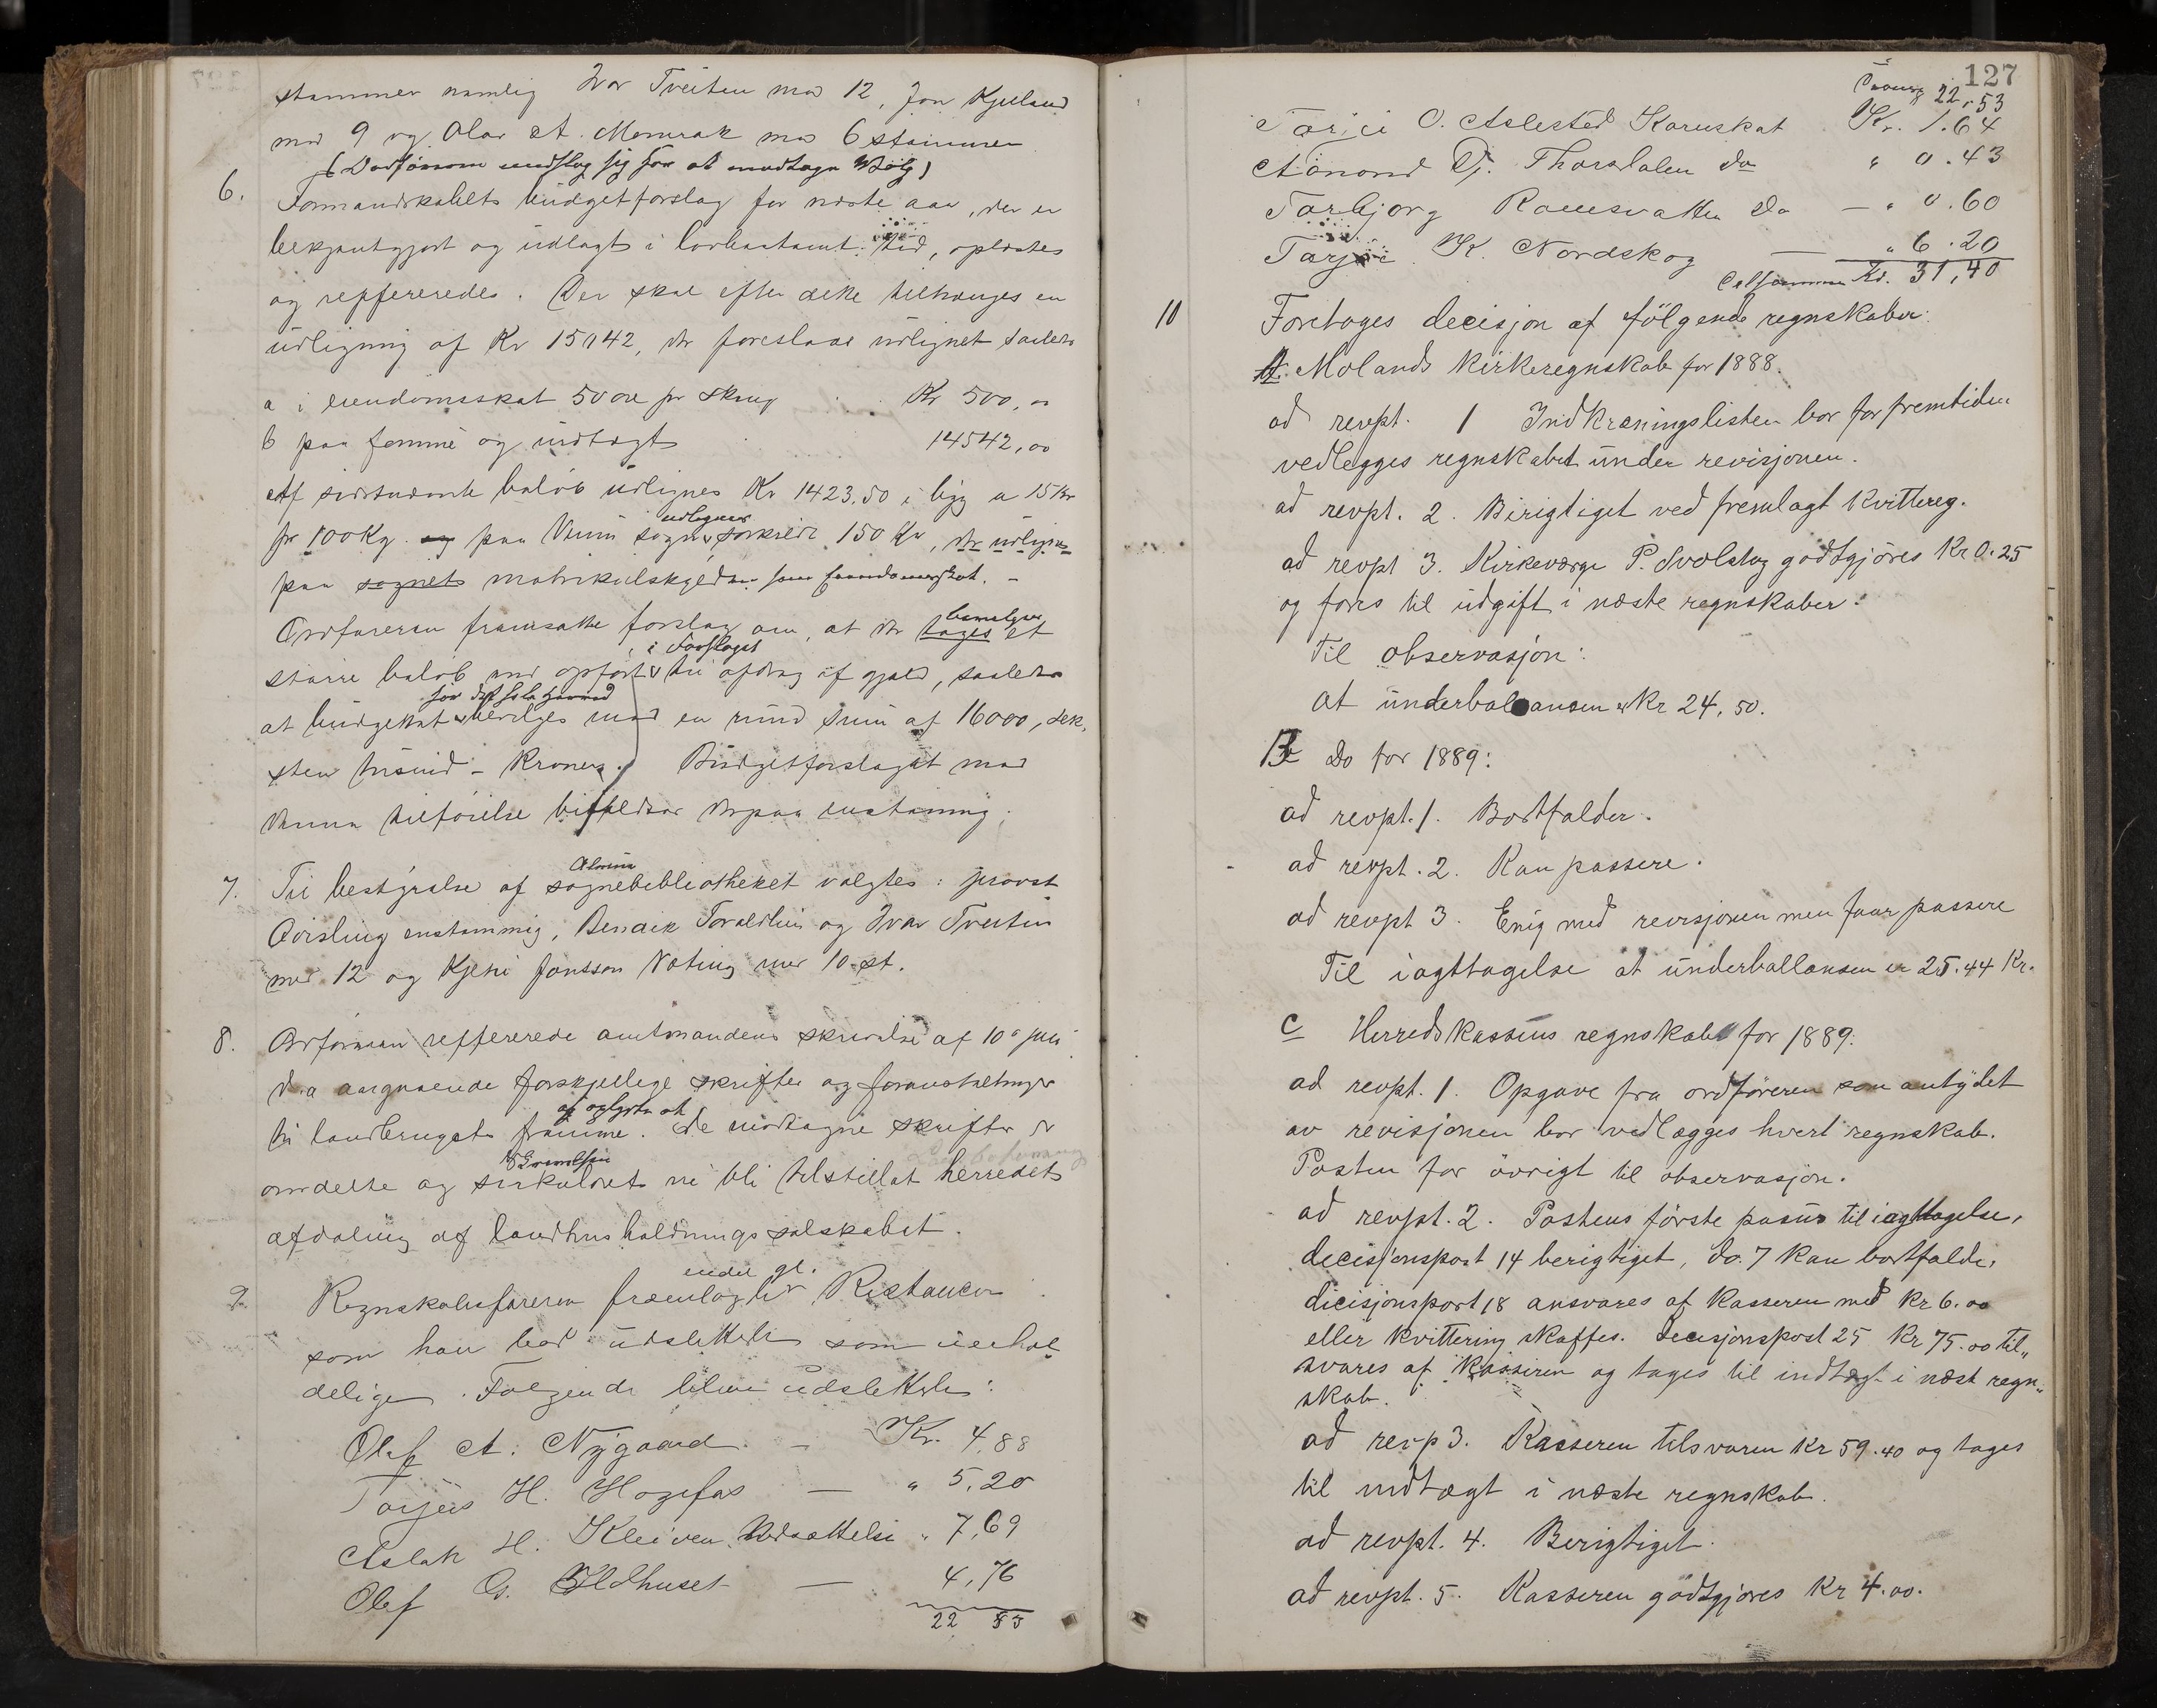 stemmer nemlig Ivar Tveiten med 12, Jon Kjeland
med 9 og Olav A. Momrak med 6 stemmer
6. Formandskabets budgetforslag for næste aar, der er
bekjentgjort og udlagt i lovbestemt tid, oplæstes
og reffereredes. Der skal efter dette tiltrænges en
udligning af Kr 15042, der foreslaaes udlignet saaledes
a i eiendomsskat 50 øre pr skmy Kr 500,00
b paa formue og indtægt 14542,00
Af sidstnævnte beløb udlignes Kr 1423,50 i lægd a 15 Kr
pr 100 Kg. og paa sogns særskildt udlignes 150 Kr, der udlignes
paa sognets matrikulskyld som eiendomsskat. -
Ordføreren fremsatte forslag om, at der tages bevilges et
større beløb end opført i Forslaget til afdrag af gjæld, saaledes
at budgettet bevilges med en rund sum af 16000, sek-
sten tusind - Kroner. Budgetforslaget med
denne tilføielse bifaldtes derpaa enstemmig.
7. Til bestyrelse af Almue sognebibliotheket valgtes: provst
Qvisling enstemmig, Bendik Torvetlien og Ivar Tveiten
med 12 og Kjetil Jonsson Noting med 10 st.
8. Ordføreren reffererede amtmandens skrivelse af 10de juli
d.a angaaende forskjellige skrifter og foranstaltninger
til landbrugets fremme. og oplyste at De modtagne skrifter er
omdelte og sirkulæret vil bli tilstillet herredets
afdeling af landhusholdningsselskabet.
9. Regnskabsføreren fremlagde endel gl. Restancer
som han bad udslettede som uerhol
delige. Følgende bleve udslettede:
Olaf A. Nygaard - Kr. 4,88
Torjus H. Hogefos — " 5,20
Aslak H. Kleiven Udsættelse " 7,69
Olaf G. Ildhuset — 4,76
22 53
127
Transp 22,53
Tarjei O. Aslested Kornskat Kr. 1.64
Aanond Tj. Thorsdalen do " 0.43
Torbjorg Rauesvatten Do — " 0.60
Tarjei K. Nordskog — " 6.20
Tilsammen Kr. 31,40
10 Foretages decisjon af følgende regnskaber:
A. Molands kirkeregnskab for 1888.
ad revpt. 1 Indkrævningslisten bør for fremtiden
vedlegges regnskabet under revisjonen.
ad revpt. 2. Birigtiget ved fremlagt kvittereg.
ad revpt 3. Kirkeværge P. Svalstog godtgjöres Kr 0.25
og føres til udgift i næste regnskaber.
Til observasjon:
At underballansen er Kr 24,50.
B Do for 1889:
ad revpt. 1. Bortfalder.
ad revpt. 2. Kan passere.
ad revpt 3. Enig med revisjonen men faar passere
Til iagttagelse at underballansen er 25.44 Kr.
C Herredskassens regnskab for 1889.
ad revpt. 1. Opgave fra ordföreren som antydet
av revisjonen bør vedlægges hvert regnskab.
Posten for övrigt til observasjon.
ad revpt. 2. Postens förste pasus til iagttagelse,
decisjonspost 14 berigtiget, do. 7 kan bortfalde,
dicisjonspost 18 ansvares af kasseren med Kr 6.00
eller kvittering skaffes. Decisjonspost 25 Kr 75.00 til„
svares af kasseren og tages til indtægt i næst regn„
skab.
ad revp 3. Kasseren tilsvaren Kr 59.40 og tages
til indtægt i næste regnskab.
ad revpt. 4. Berigtiget.
ad revpt. 5. Kasseren godtgjøres Kr 4.00.